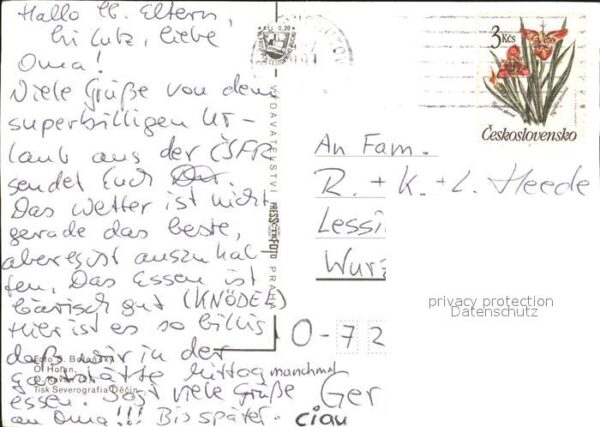 Hallo lb. Eltern,
hi Lutz, liebe
Oma!
Viele Grüße von dem
superbilligen Ur-
laub aus der ČSFR
sendet Euch
Das Wetter ist nicht
gerade das beste,
aber es ist auszuhal
ten. Das Essen ist
bärisch gut (KNÖDEL)
Hier ist es so billig
daß wir in der
Gaststätte mittag manchmal
essen. Sagt viele Grüße
an Oma!!! Bis später. ciau
Foto
O! Hořan,
Tisk Severografia Děčín
VYDAVATELSTVÍ PRESSFOTO PRAHA
Kčs 0,70
3 Kčs
Československo
An Fam.
R. + K. + L. Heede
Lessi
Wurz
O-72
Ger
privacy protection
Datenschutz